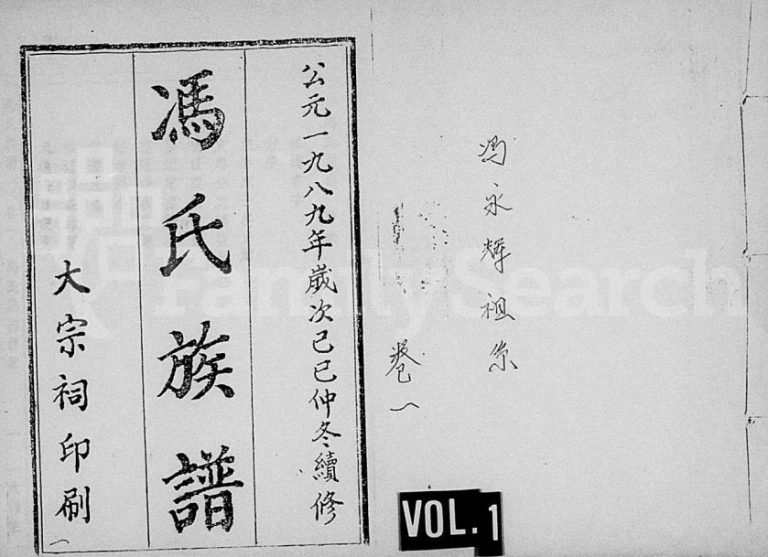 公元一九八九年歲次己巳仲冬續修
馮氏族譜
大宗祠印刷
冯永辉祖系
卷一
VOL.1
FamilySearch